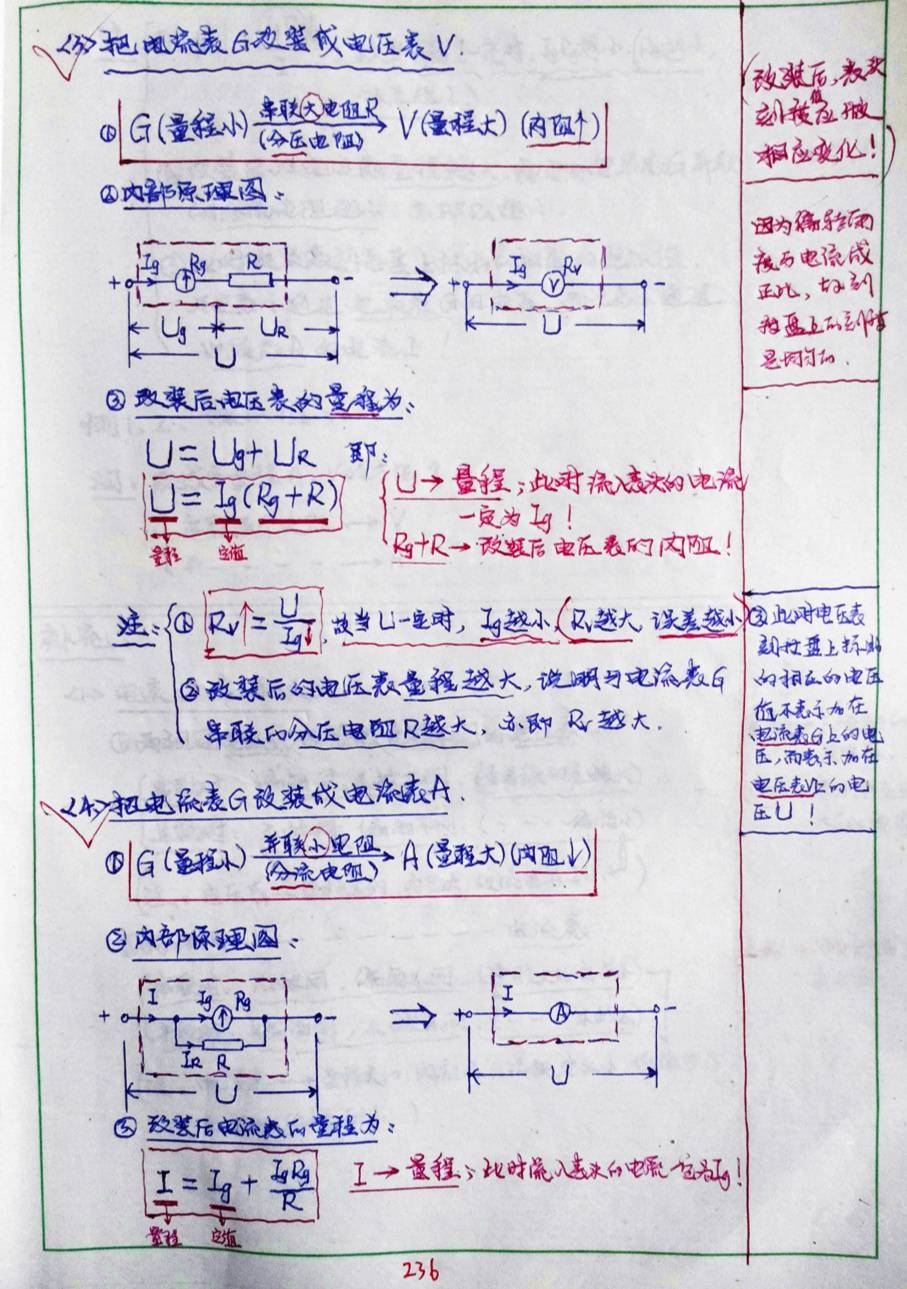 <3>把电流表G改装成电压表V
① G(量程小) 串联大电阻R (分压电阻) V(量程大) (内阻↑)
②内部原理图:
+ Ig Rg R - ⇒ + Ig Rv V -
Ug UR U
U
③ 改装后电压表的量程为:
U=Ug+UR 即:
U=Ig(Rg+R)
量程 定值
U→量程;此时流入表头的电流
一定为Ig!
Rg+R→改装后电压表的内阻!
注:① Rv↑=U/Ig↓,故当U一定时,Ig越小,Rv越大,误差越小
②改装后的电压表量程越大,说明与电流表G
串联的分压电阻R越大,亦即Rv越大
<4>把电流表G改装成电流表A.
① G(量程小) 并联小电阻 (分流电阻) A(量程大)(内阻↓)
②内部原理图:
+ I Ig Rg - ⇒ + I A -
IR R
U U
③ 改装后电流表的量程为:
I=Ig+IgRg/R
量程 定值
I→量程;此时流入表头的电流一定为Ig!
改装后,表头
刻度值应做
相应变化!
因为偏转角
度与电流成
正比,故刻
度盘上的刻度
是均匀的.
③此时电压表
刻度盘上标出
的相应的电压
值不表示加在
电流表G上的电
压,而表示加在
电压表V上的电
压U!
236